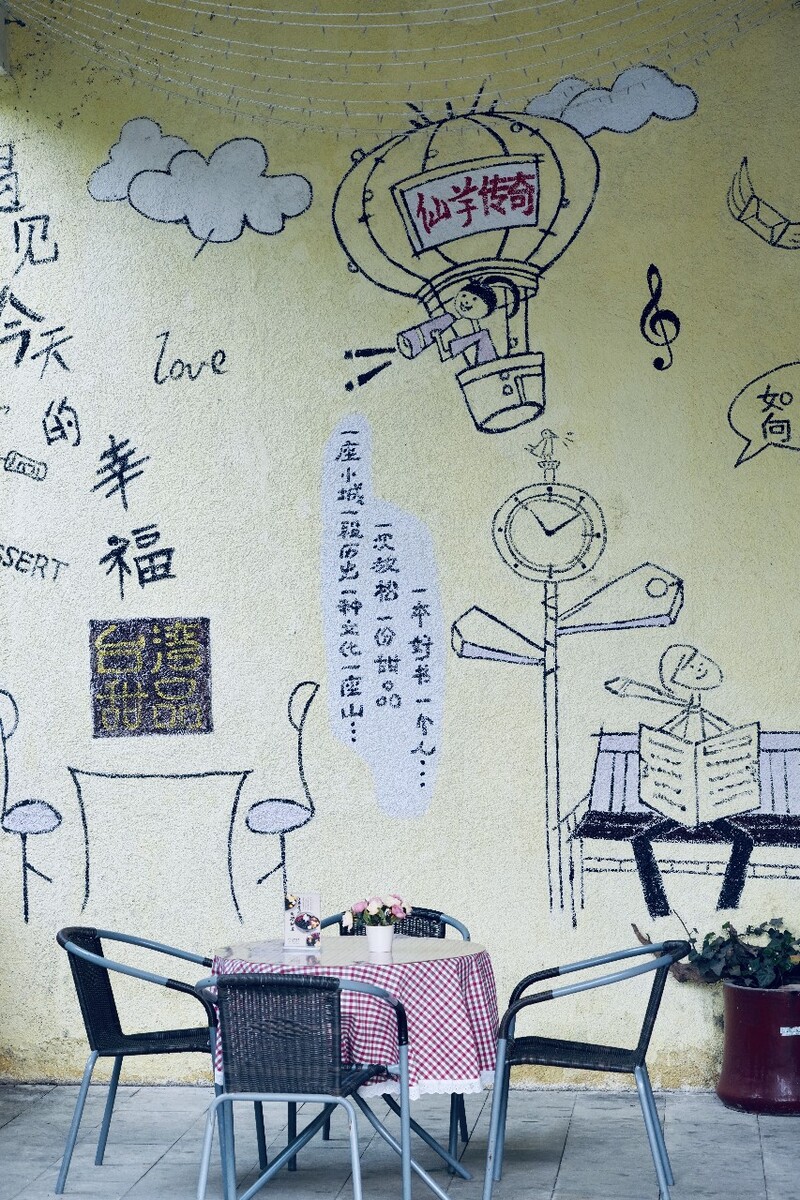 仙芋传奇
见
今天
的
幸
福
love
SSERT
台湾
甜品
一座小城一段历史一种文化一座山...
一次放松一份甜品
一本好书一个人...
如
向